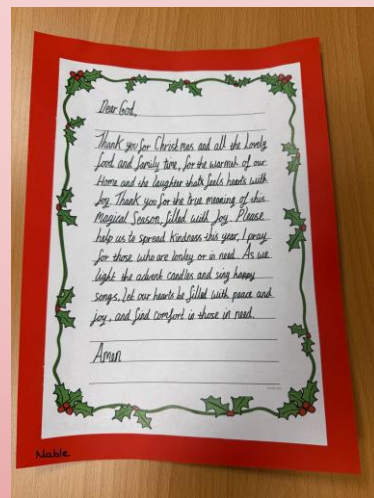 Dear God,
Thank you for Christmas and all the lovely
food and family time, for the warmth of our
Home and the laughter thats feels hearts with
Joy. Thank you for the true meaning of this
magical Season, filled with Joy. Please
help us to spread kindness this year, I pray
for those who are lonley or in need. As we
light the advent candles and sing happy
songs. Let our hearts be filled with peace and
joy, and find comfort in those in need.
Amen
Nable